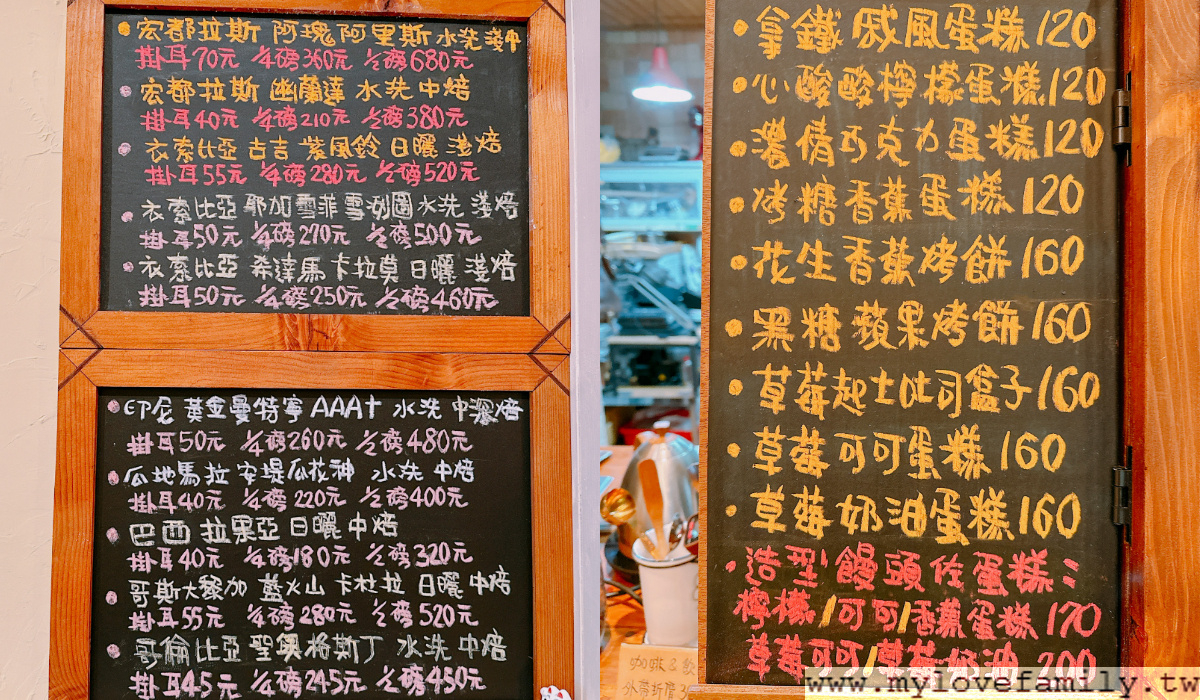 宏都拉斯 阿瑰阿里斯 水洗 淺中
掛耳70元 1/4磅360元 1/2磅680元
宏都拉斯 幽蘭達 水洗 中焙
掛耳40元 1/4磅210元 1/2磅380元
衣索比亞 古吉 紫風鈴 日曬 淺焙
掛耳55元 1/4磅280元 1/2磅520元
衣索比亞 耶加雪菲 雪冽圖 水洗 淺焙
掛耳50元 1/4磅270元 1/2磅500元
衣索比亞 希達馬 卡拉莫 日曬 淺焙
掛耳50元 1/4磅250元 1/2磅460元
印尼 黃金曼特寧 AAA+ 水洗 中深焙
掛耳50元 1/4磅260元 1/2磅480元
瓜地馬拉 安堤瓜花神 水洗 中焙
掛耳40元 1/4磅220元 1/2磅400元
巴西 拉果亞 日曬 中焙
掛耳40元 1/4磅180元 1/2磅320元
哥斯大黎加 藍火山 卡杜拉 日曬 中焙
掛耳55元 1/4磅280元 1/2磅520元
哥倫比亞 聖奧格斯丁 水洗 中焙
掛耳45元 1/4磅245元 1/2磅450元
拿鐵戚風蛋糕120
心酸酸檸檬蛋糕120
濃情巧克力蛋糕120
烤糖香蕉蛋糕120
花生香蕉烤餅160
黑糖蘋果烤餅160
草莓起士吐司盒子160
草莓可可蛋糕160
草莓奶油蛋糕160
造型饅頭佐蛋糕:
檸檬/可可/香蕉蛋糕170
草莓可可/草莓奶油 200
咖啡&
外帶折
www.mylovefamily.tw